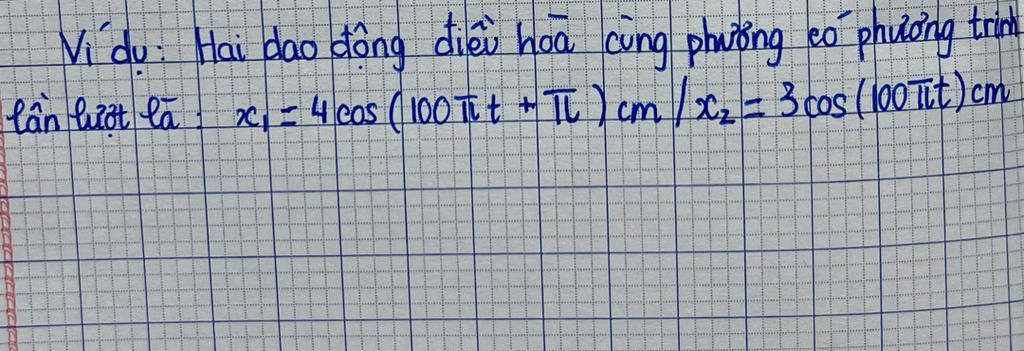 Ví dụ: Hai dao động điều hòa cùng phương có phương trình
lần lượt là: x₁ = 4cos(100πt + π) cm / x₂ = 3cos(100πt) cm